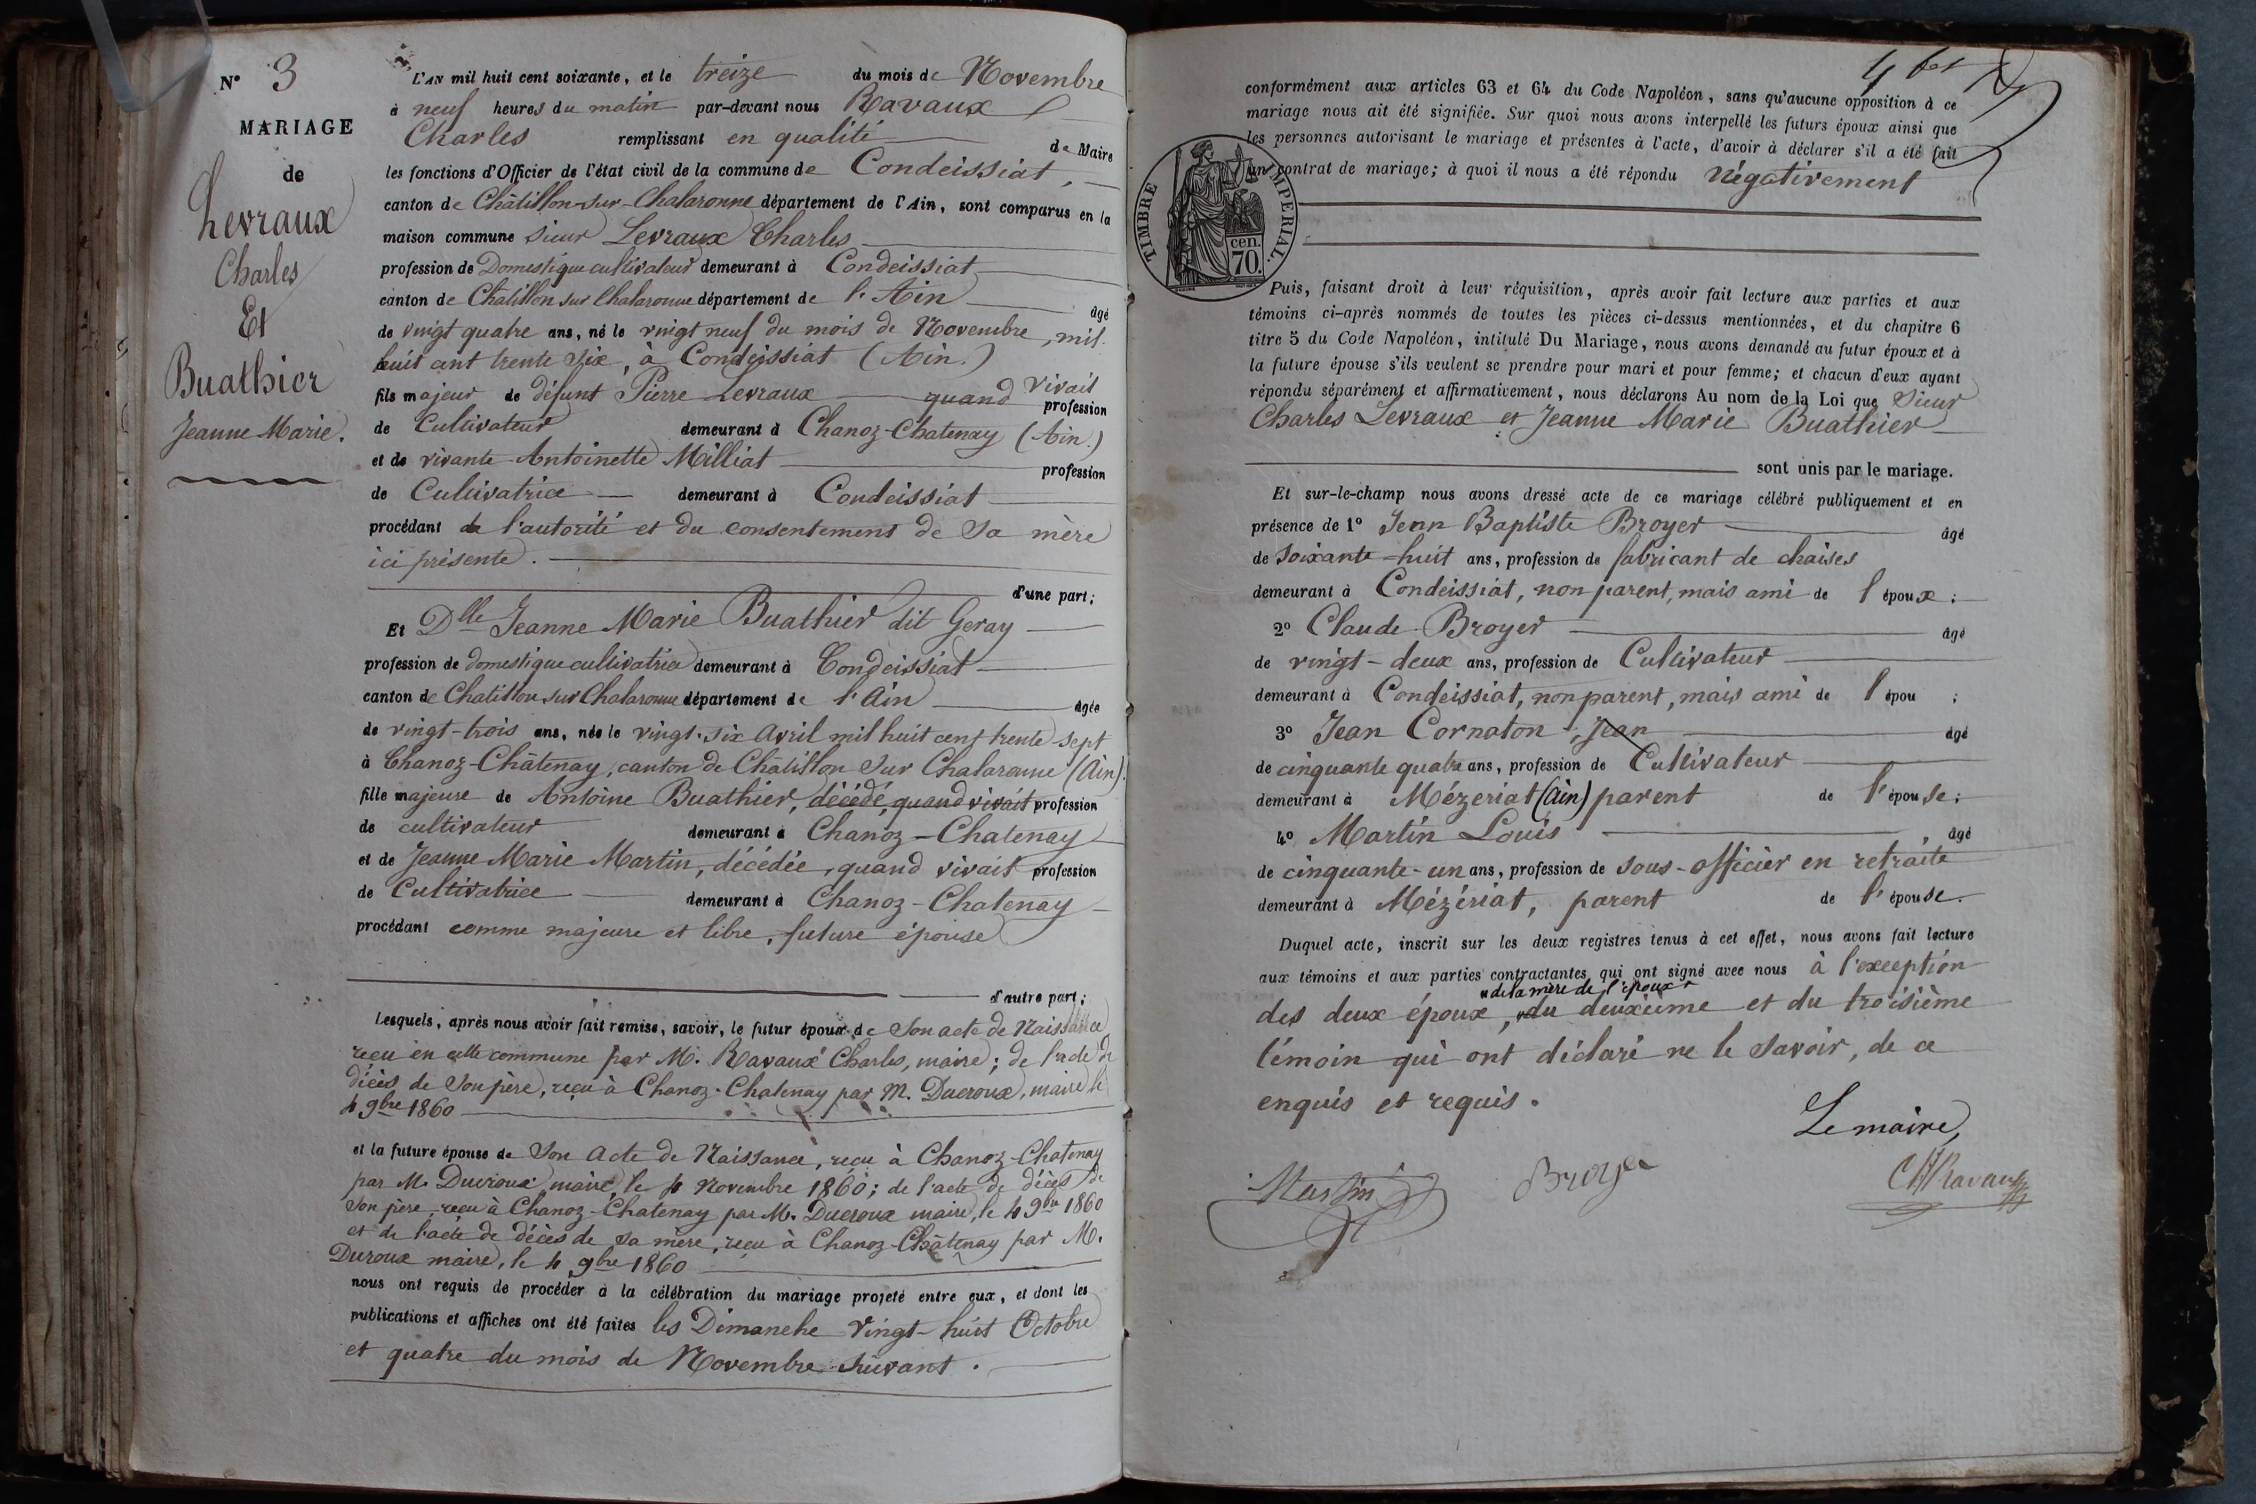 N° 3
MARIAGE
de
Levraux
Charles
Et
Buathier
Jeanne Marie.
L'AN mil huit cent soixante, et le treize du mois de Novembre
à neuf heures du matin par-devant nous Ravaux
Charles remplissant en qualité de Maire
les fonctions d'Officier de l'état civil de la commune de Condeissiat,
canton de Châtillon-sur-Chalaronne département de l'Ain, sont comparus en la
maison commune sieur Levraux Charles
profession de Domestique cultivateur demeurant à Condeissiat
canton de Châtillon sur Chalaronne département de l'Ain âgé
de vingt quatre ans, né le vingt neuf du mois de Novembre, mil
huit cent trente six, à Condeissiat (Ain.)
fils majeur de défunt Pierre Levraux quand vivait profession
de Cultivateur demeurant à Chanoz-Chatenay (Ain.)
et de vivante Antoinette Milliat profession
de Cultivatrice demeurant à Condeissiat
procédant de l'autorité et du consentement de sa mère
ici présente.
d'une part;
Et Dlle Jeanne Marie Buathier dit Geray
profession de domestique cultivatrice demeurant à Condeissiat
canton de Chatillon sur Chalaronne département de l'Ain âgée
de vingt-trois ans, née le vingt-six avril mil huit cent trente-sept
à Chanoz-Châtenay, canton de Châtillon sur Chalaronne (Ain).
fille majeure de Antoine Buathier, décédé, quand vivait profession
de cultivateur demeurant à Chanoz-Chatenay
et de Jeanne Marie Martin, décédée, quand vivait profession
de Cultivatrice demeurant à Chanoz-Chatenay
procédant comme majeure et libre, future épouse
d'autre part;
Lesquels, après nous avoir fait remise, savoir, le futur époux de Son acte de Naissance
reçu en cette commune par M. Ravaux Charles, maire; de l'acte de
décès de Son père, reçu à Chanoz-Chatenay par M. Ducroux, maire le
4 9bre 1860
et la future épouse de Son acte de Naissance, reçu à Chanoz-Chatenay
par M. Ducroux maire, le 4 Novembre 1860; de l'acte de décès de
Son père, reçu à Chanoz-Chatenay par M. Ducroux maire, le 4 9bre 1860
et de l'acte de décès de sa mère, reçu à Chanoz-Châtenay par M.
Duroux maire, le 4 9bre 1860
nous ont requis de procéder à la célébration du mariage projeté entre eux, et dont les
publications et affiches ont été faites les Dimanche vingt-huit Octobre
et quatre du mois de Novembre suivant.
4 bis
conformément aux articles 63 et 64 du Code Napoléon, sans qu'aucune opposition à ce
mariage nous ait été signifiée. Sur quoi nous avons interpellé les futurs époux ainsi que
les personnes autorisant le mariage et présentes à l'acte, d'avoir à déclarer s'il a été fait
un contrat de mariage; à quoi il nous a été répondu négativement
TIMBRE IMPERIAL.
cen.
70.
Puis, faisant droit à leur réquisition, après avoir fait lecture aux parties et aux
témoins ci-après nommés de toutes les pièces ci-dessus mentionnées, et du chapitre 6
titre 5 du Code Napoléon, intitulé Du Mariage, nous avons demandé au futur époux et à
la future épouse s'ils veulent se prendre pour mari et pour femme; et chacun d'eux ayant
répondu séparément et affirmativement, nous déclarons Au nom de la Loi que Sieur
Charles Levraux et Jeanne Marie Buathier
sont unis par le mariage.
Et sur-le-champ nous avons dressé acte de ce mariage célébré publiquement et en
présence de 1° Jean Baptiste Broyer âgé
de soixante-huit ans, profession de fabricant de chaises
demeurant à Condeissiat, non parent, mais ami de l'époux;
2° Claude Broyer âgé
de vingt-deux ans, profession de Cultivateur
demeurant à Condeissiat, non parent, mais ami de l'épou ;
3° Jean Cornaton, Jean âgé
de cinquante quatre ans, profession de Cultivateur
demeurant à Mézeriat (Ain) parent de l'épouse;
4° Martin Louis, âgé
de cinquante-un ans, profession de sous-officier en retraite
demeurant à Mézériat, parent de l'épouse.
Duquel acte, inscrit sur les deux registres tenus à cet effet, nous avons fait lecture
aux témoins et aux parties contractantes qui ont signé avec nous à l'exception
de la mère de l'époux
des deux époux, du deuxième et du troisième
témoin qui ont déclaré ne le savoir, de ce
enquis et requis.
Le maire,
Martin Broyer Ch Ravaux